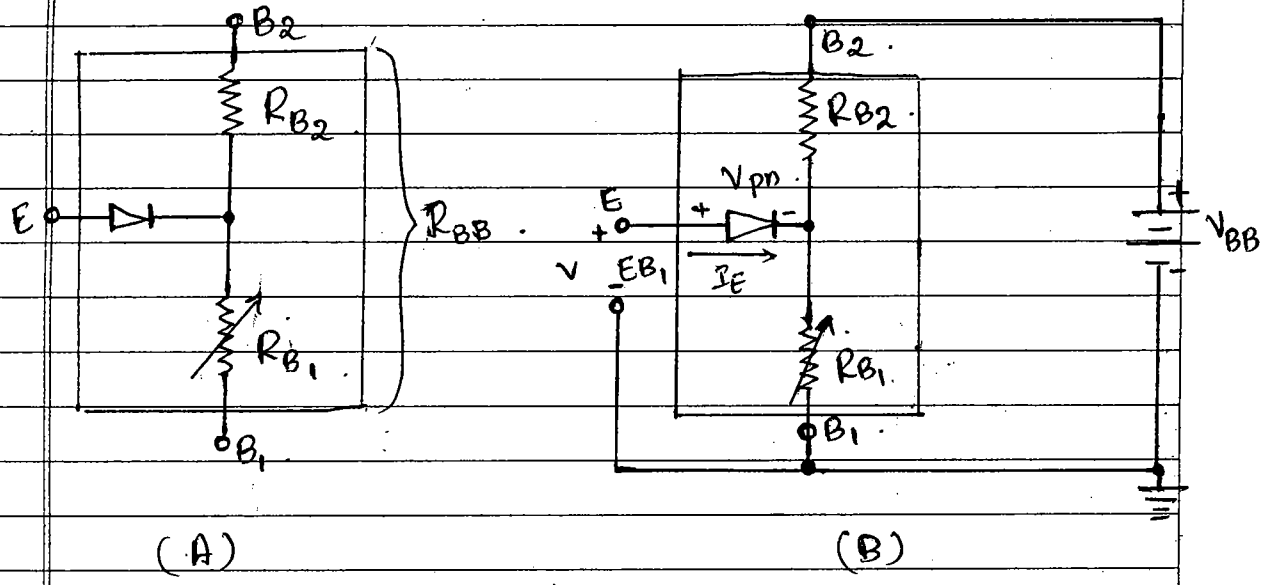 B2
RB2
E
RBB
RB1
B1
(A)
B2
RB2
Vpn
E
+
+
-
IE
V
EB1
-
RB1
B1
+
-
VBB
(B)